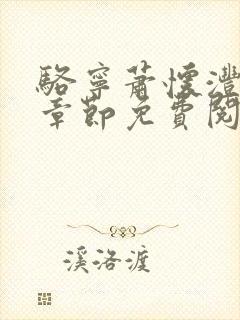 駱寧蕭懷灃
章節免費閱
溪洛渡